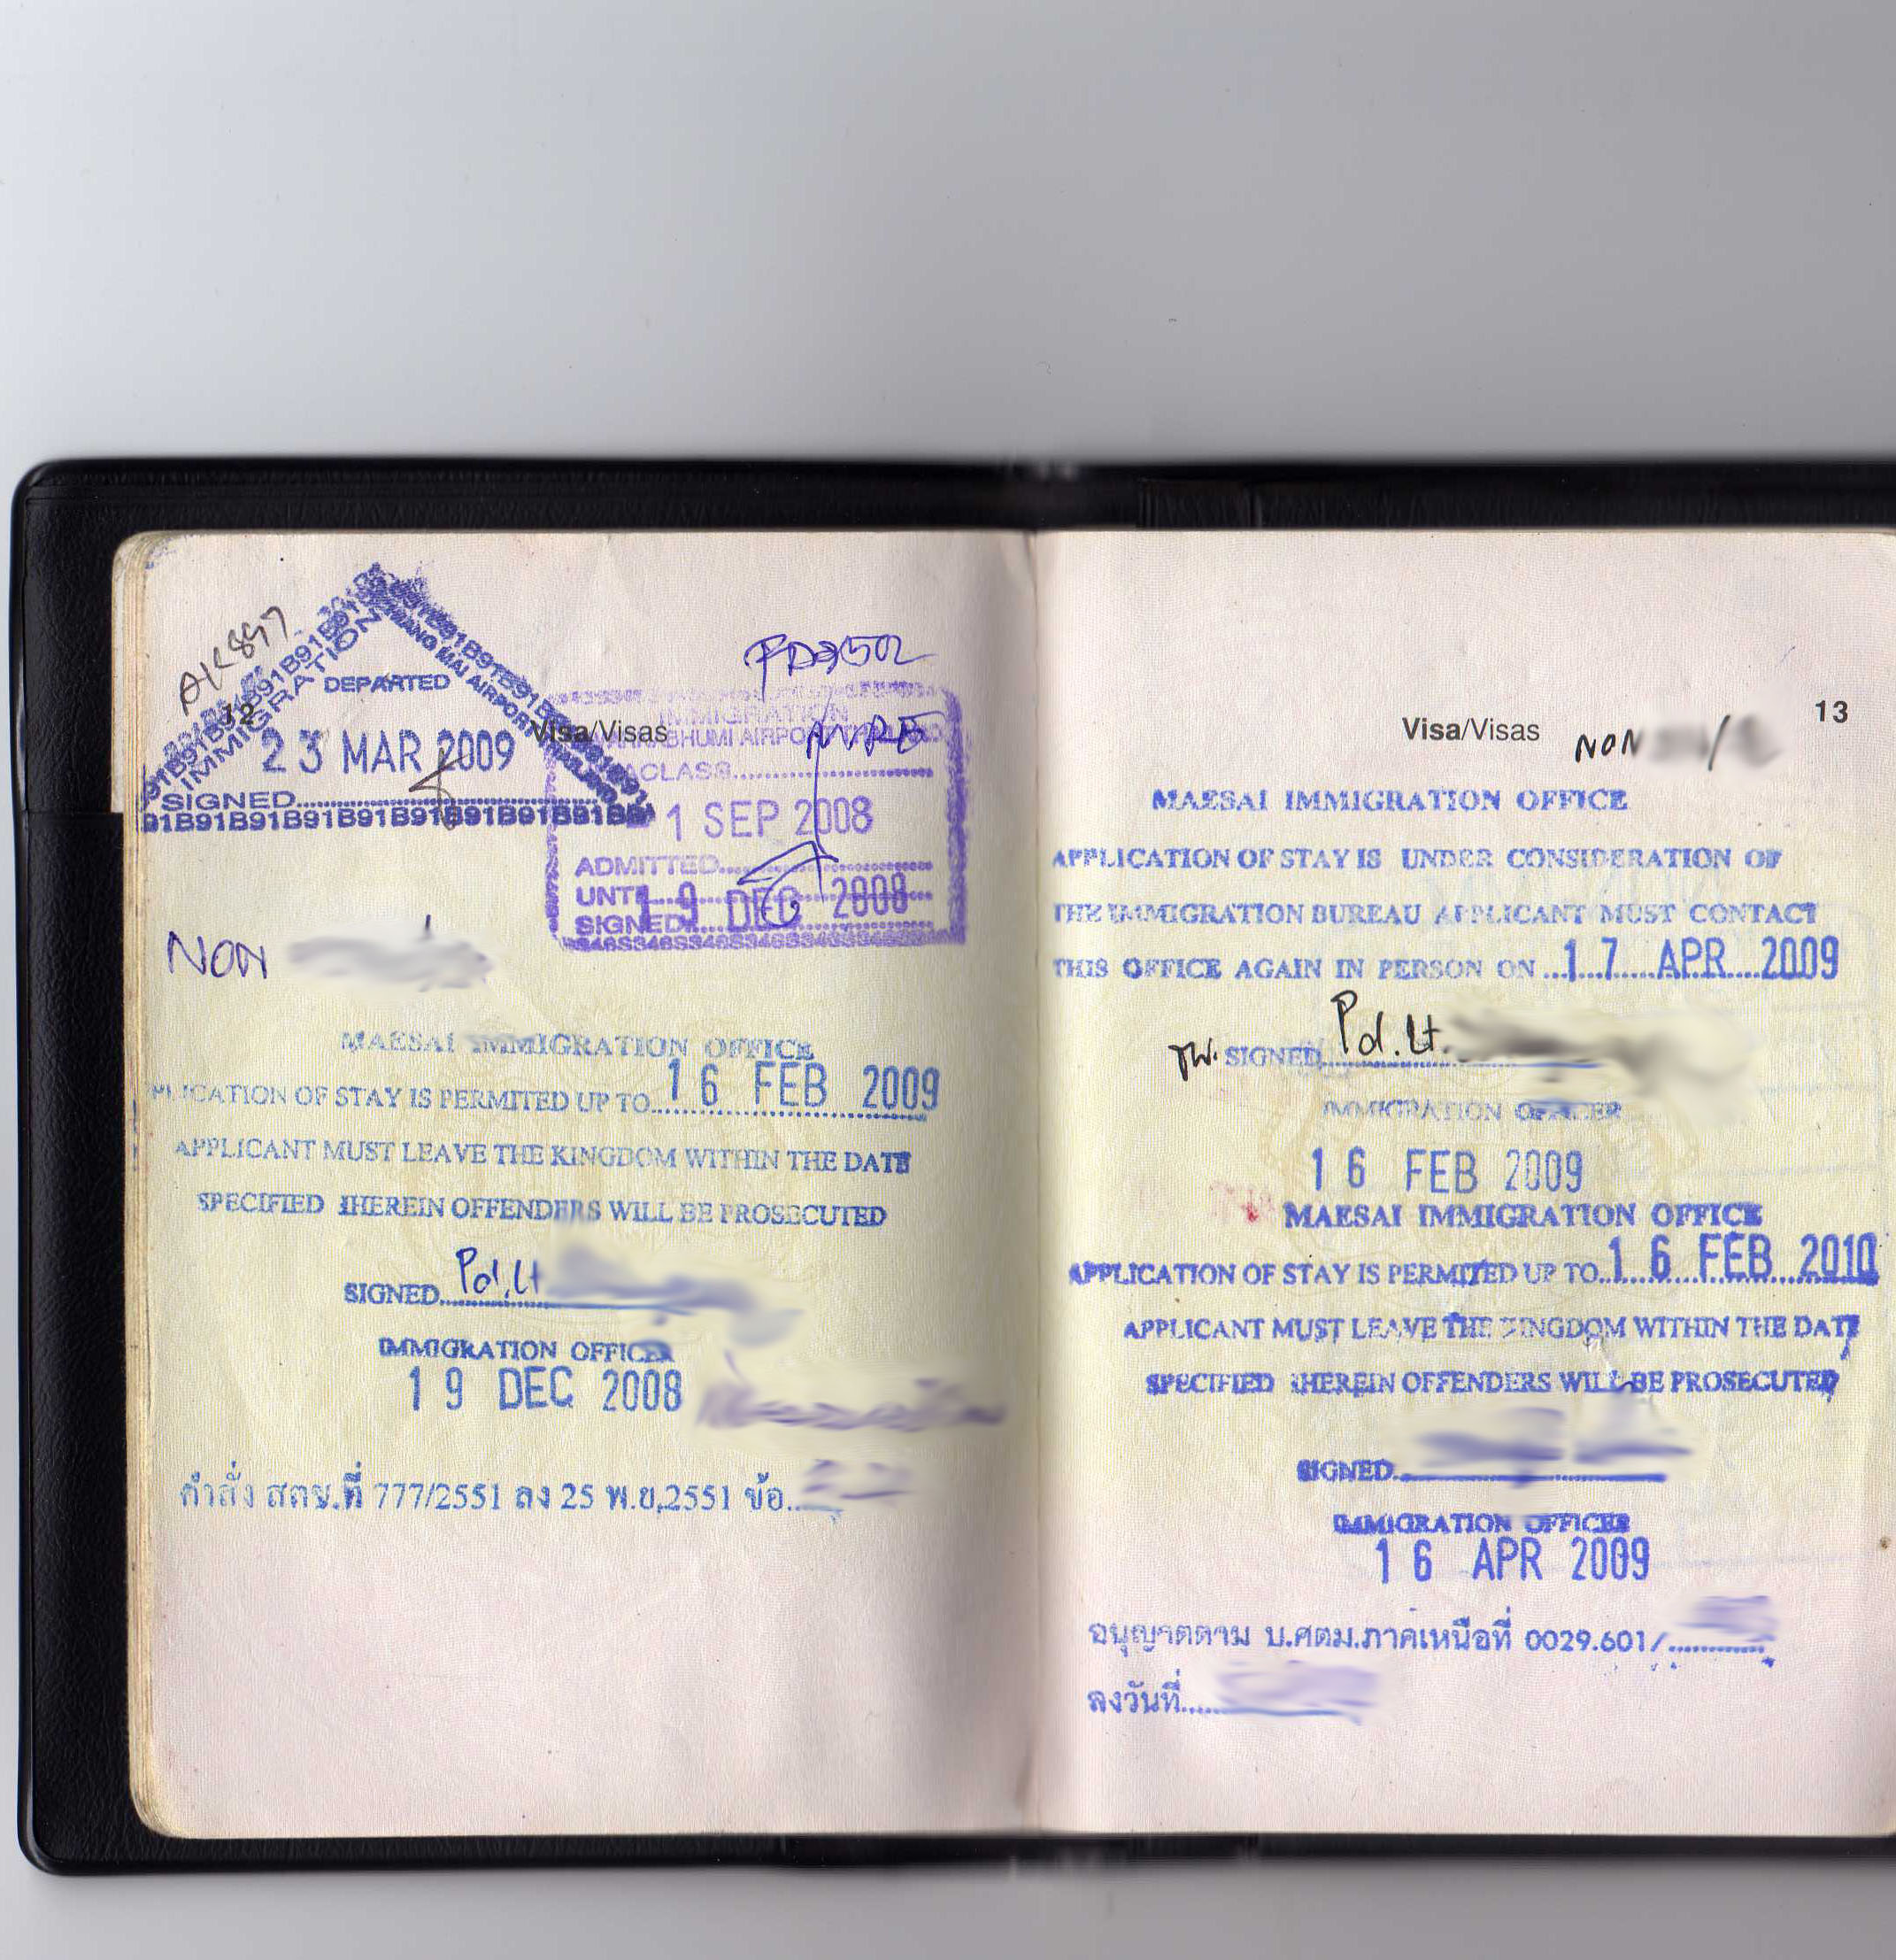 AK897
IMMIGRATION
CHIANG MAI AIRPORT THAILAND
DEPARTED
12
23 MAR 2009
SIGNED
91B91B91B91B91B91B91B91B91B91B91B91
Visa/Visas
FD3502
IMMIGRATION
CLASS
1 SEP 2008
ADMITTED
UNTIL 19 DEC 2008
SIGNED
NON
MAESAI IMMIGRATION OFFICE
PLICATION OF STAY IS PERMITED UP TO 16 FEB 2009
APPLICANT MUST LEAVE THE KINGDOM WITHIN THE DATE
SPECIFIED HEREIN OFFENDERS WILL BE PROSECUTED
SIGNED Pol.Lt
IMMIGRATION OFFICER
19 DEC 2008
คำสั่ง สตม.ที่ 777/2551 ลง 25 พ.ย.2551 ข้อ
13
Visa/Visas
NON
MAESAI IMMIGRATION OFFICE
APPLICATION OF STAY IS UNDER CONSIDERATION OF
THE IMMIGRATION BUREAU APPLICANT MUST CONTACT
THIS OFFICE AGAIN IN PERSON ON 17 APR 2009
SIGNED Pol.Lt.
IMMIGRATION OFFICER
16 FEB 2009
MAESAI IMMIGRATION OFFICE
APPLICATION OF STAY IS PERMITED UP TO 16 FEB 2010
APPLICANT MUST LEAVE THE KINGDOM WITHIN THE DATE
SPECIFIED HEREIN OFFENDERS WILL BE PROSECUTED
SIGNED
IMMIGRATION OFFICER
16 APR 2009
อนุญาตตาม บ.ศตม.ภาคเหนือที่ 0029.601/
ลงวันที่